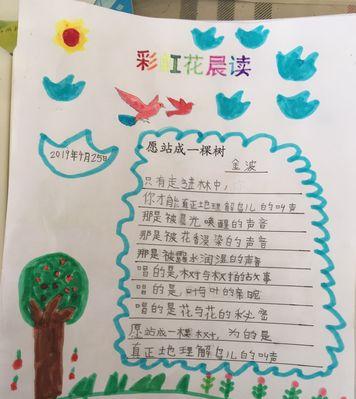 彩虹花晨读
2019年4月25日
愿站成一棵树
金波
只有走进林中，
你才能真正地理解鸟儿的叫声
那是被晨光唤醒的声音
那是被花香浸染的声音
那是被露水润湿的声音
唱的是树与树枝的故事
唱的是，叶与叶的亲昵
唱的是花与花的秘密
愿站成一棵树，为的是
真正地理解鸟儿的叫声